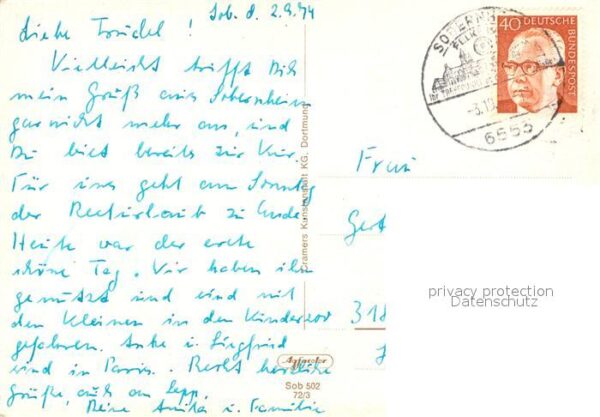 Sob. d. 2.9.74
Liebe Trudel!
Vielleicht trifft Dich
mein Gruß aus Sobernheim
gar nicht mehr an, und
Du bist bereits zur Kur.
Für uns geht am Sonntag
der Resturlaub zu Ende
Heute war der erste
schöne Tag. Wir haben ihn
genützt und sind mit
den Kleinen in den Kinderzoo
gefahren. Anke u. Siegfried
sind in Paris. Recht herzliche
Grüße, auch an Sepp,
Deine Anita u. Familie
Cramers Kunstanstalt KG, Dortmund
Sob 502
72/3
SOBERNHEIM
6553
40 DEUTSCHE
BUNDESPOST
Frau
Gert
318
privacy protection
Datenschutz